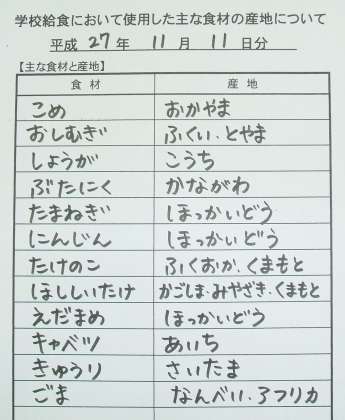 学校給食において使用した主な食材の産地について
平成 27 年 11 月 11 日分
【主な食材と産地】
食 材 産 地
こめ おかやま
おしむぎ ふくい・とやま
しょうが こうち
ぶたにく かながわ
たまねぎ ほっかいどう
にんじん ほっかいどう
たけのこ ふくおか、くまもと
ほししいたけ かごしま・みやざき・くまもと
えだまめ ほっかいどう
キャベツ あいち
きゅうり さいたま
ごま なんべい・アフリカ